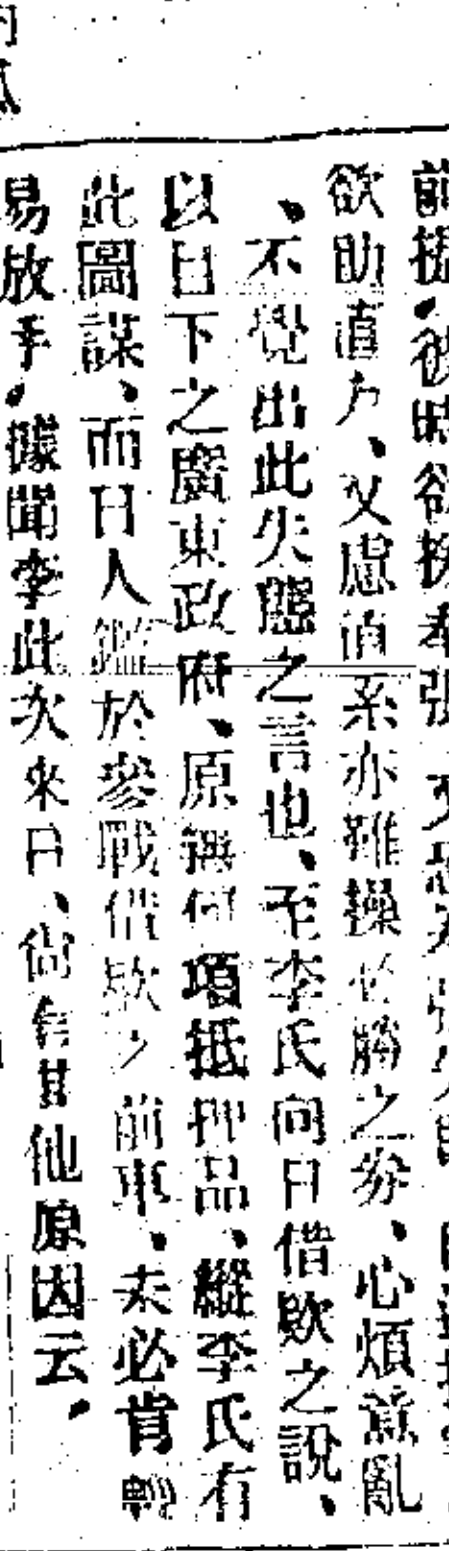 前提、彼時欲扶奉張、又恐
欲助直方、又慮直系亦難操必勝之券、心煩意亂
、不覺出此失態之言也、至李氏向日借欵之說、
以目下之廣東政府、原無何項抵押品、縱李氏有
此圖謀、而日人鑑於參戰借欵之前車、未必肯輕
易放手、據聞李此次來日、尙有其他原因云、
的